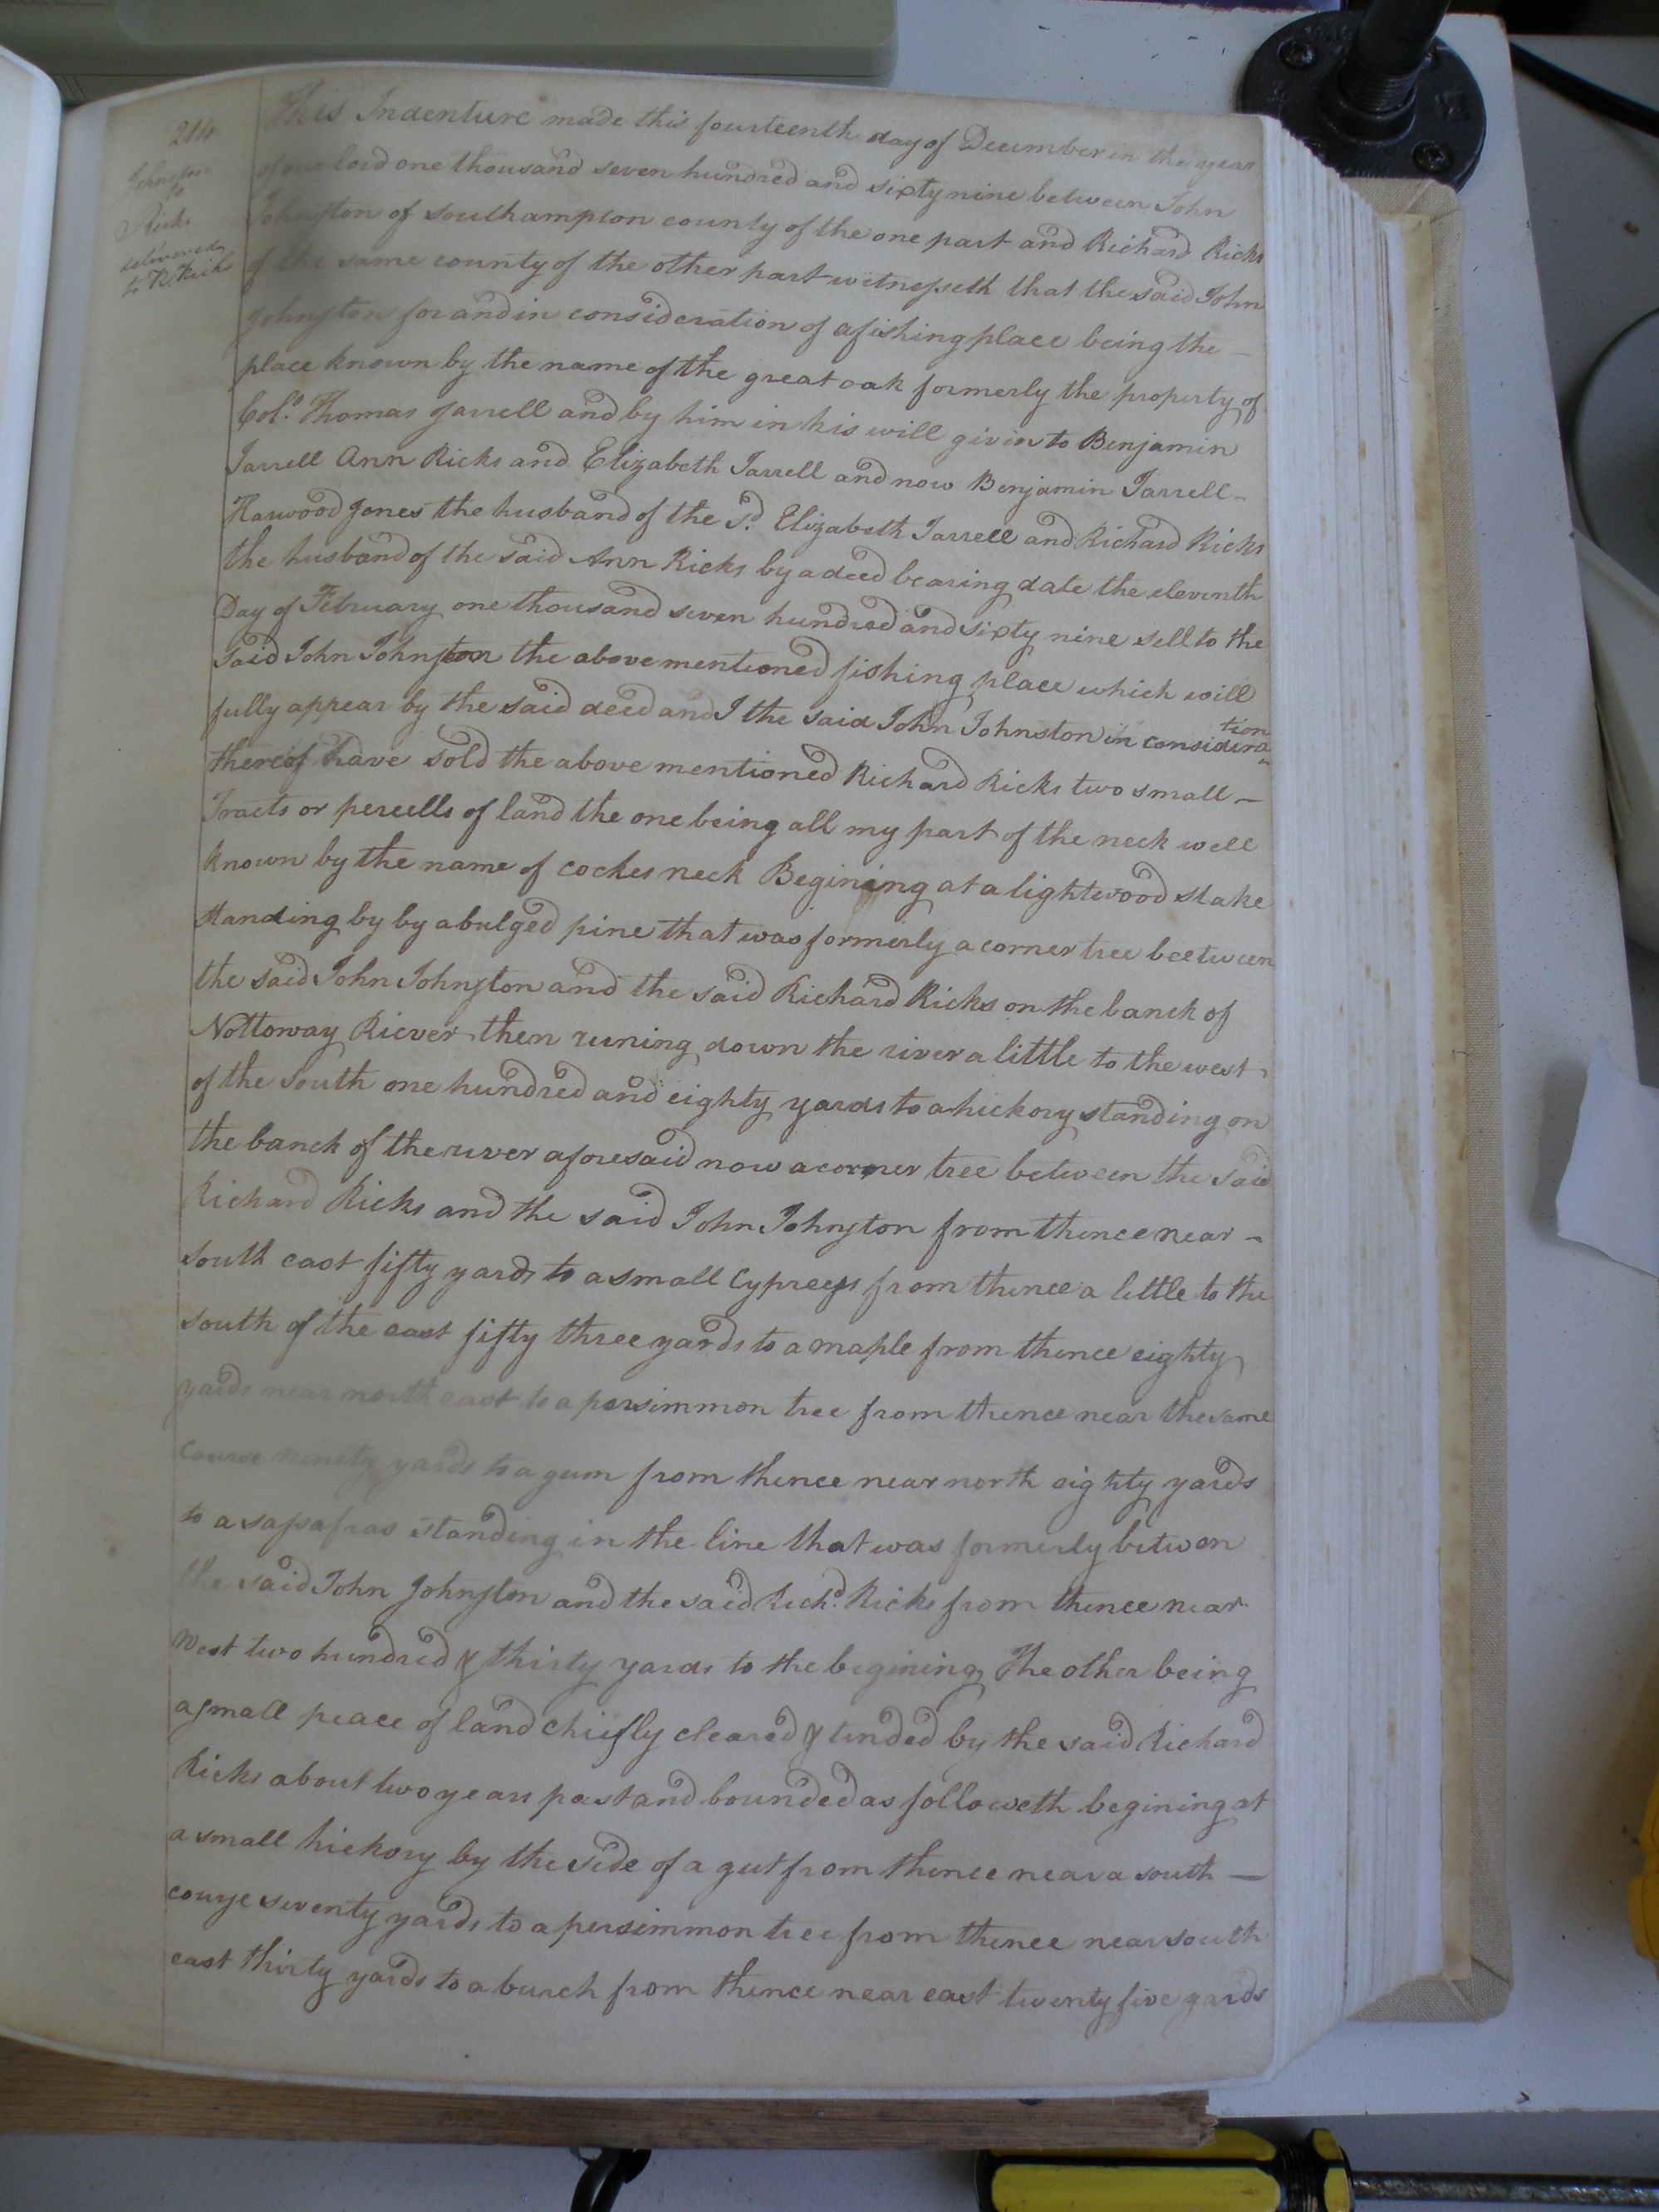 214
Johnston
to
Ricks
delivered
to R. Rick
This Indenture made this fourteenth day of December in the year
of our lord one thousand seven hundred and sixty nine between John
Johnston of Southampton county of the one part and Richard Ricks
of the same county of the other part witnesseth that the said John
Johnston for and in consideration of a fishing place being the
place known by the name of the great oak formerly the property of
Col.º Thomas Jarrell and by him in his will givin to Benjamin
Jarrell Ann Ricks and Elizabeth Jarrell and now Benjamin Jarrell
Harwood Jones the husband of the s.d Elizabeth Jarrell and Richard Ricks
the husband of the said Ann Ricks by a deed bearing date the eleventh
Day of February one thousand seven hundred and sixty nine sell to the
Said John Johnston the above mentioned fishing place which will
fully appear by the said deed and I the said John Johnston in consideration
thereof have sold the above mentioned Richard Ricks two small
Tracts or percells of land the one being all my part of the neck well
known by the name of cockes neck Begining at a lightwood stake
standing by by a bulged pine that was formerly a corner tree beetween
the said John Johnston and the said Richard Ricks on the banck of
Nottoway Riever then runing down the river a little to the west
of the south one hundred and eighty yards to a hickory standing on
the banck of the river aforesaid now a corner tree between the said
Richard Ricks and the said John Johnston from thence near
south east fifty yards to a small Cypress from thence a little to the
south of the east fifty three yards to a maple from thence eighty
yards near north east to a persimmon tree from thence near the same
course ninety yards to a gum from thence near north eighty yards
to a sassafras standing in the line that was formerly betwen
the said John Johnston and the said Rich.d Ricks from thence near
West two hundred & thirty yards to the begining The other being
a small peace of land chiefly cleared & tended by the said Richard
Ricks about two years past and bounded as followeth begining at
a small hickory by the side of a gut from thence near a south
course seventy yards to a persimmon tree from thence near south
east thirty yards to a burch from thence near east twenty five yards